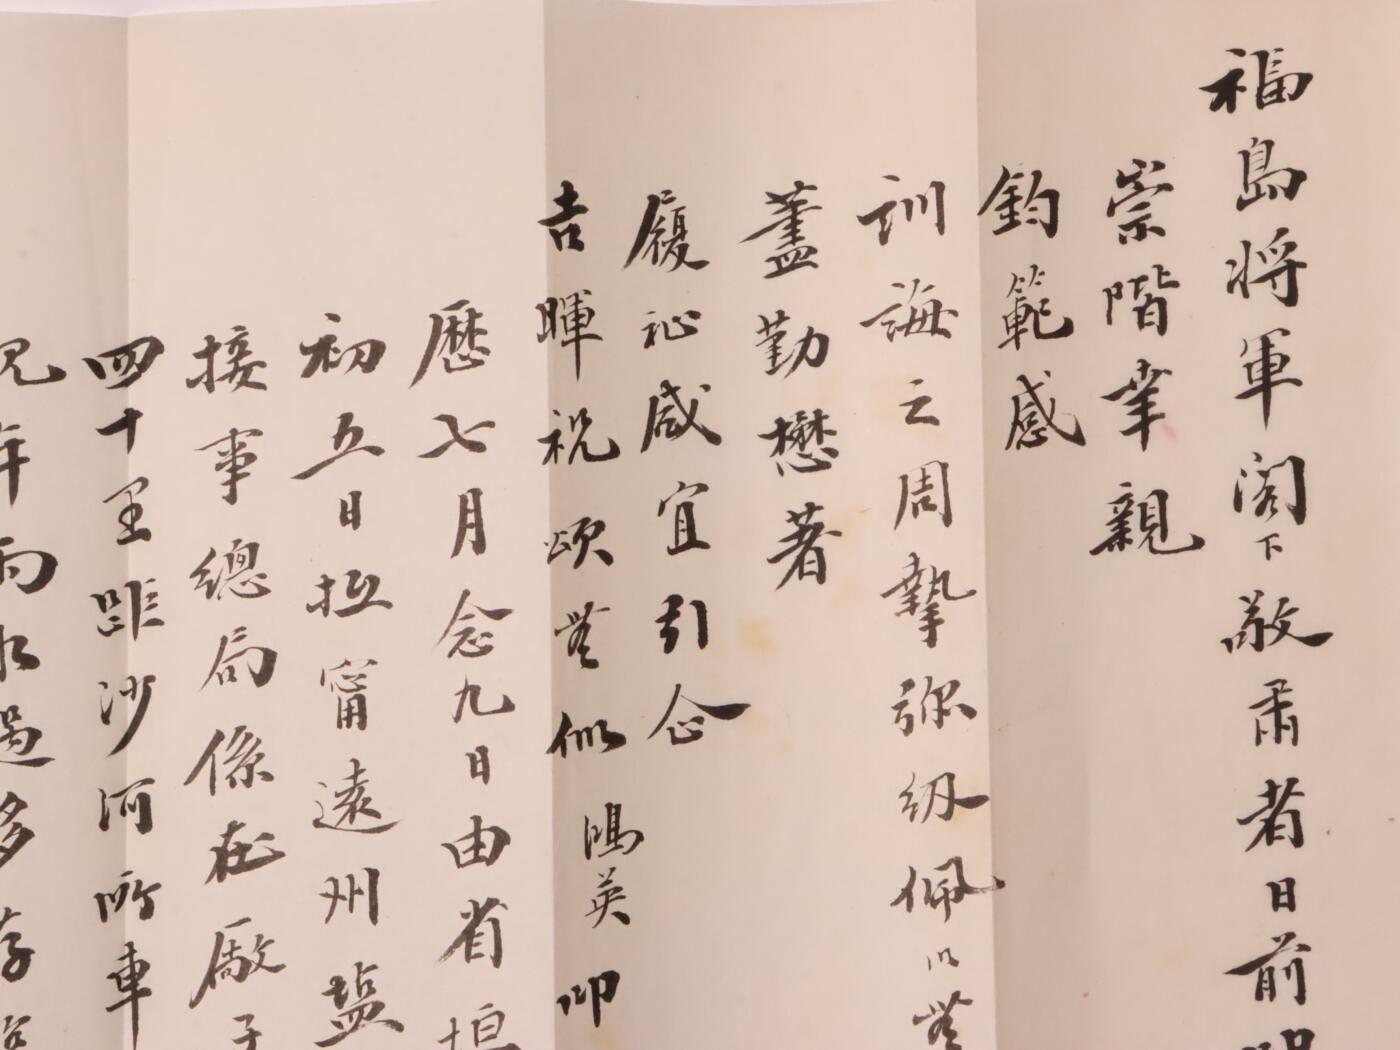 福島将軍閣下敬肅者日前
崇階幸親
鈞範感
訓誨之周摯弥紉佩以無
藎勤懋著
履祉咸宜引念
吉暉祝頌無似鴻英叩
歷七月念九日由省垣
初五日抵甯遠州塩
接事總局係在廠子
四十里距沙河所車
年雨水過多存